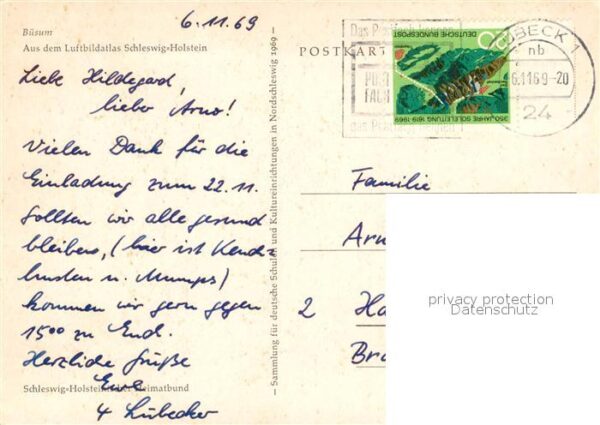 6.11.69
Büsum
Aus dem Luftbildatlas Schleswig-Holstein
Liebe Hildegard,
lieber Arno!
Vielen Dank für die
Einladung zum 22.11.
Sollten wir alle gesund
bleiben, (hier ist Keuch-
husten u. Mumps)
kommen wir gern gegen
15⁰⁰ zu Euch.
Herzliche Grüße
Eure
4 Lübecker
Schleswig-Holsteinischer Heimatbund
— Sammlung für deutsche Schulen und Kultureinrichtungen in Nordschleswig 1969 —
POSTKARTE
DEUTSCHE BUNDESPOST
20
350 JAHRE SOLELEITUNG 1619 1969
LÜBECK 1
nb
-6.11.69-20
24
Familie
Arn
2 Ha
Bra
privacy protection
Datenschutz